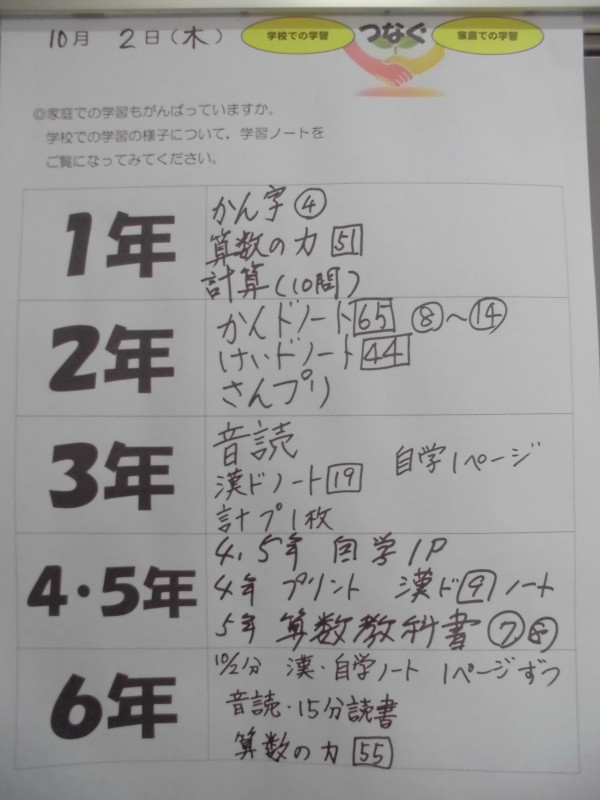 10月 2日(木)
学校での学習 つなぐ 家庭での学習
◎家庭での学習もがんばっていますか。
学校での学習の様子について，学習ノートを
ご覧になってみてください。
1年
かん字④
算数の力 51
計算(10問)
2年
かんドノート65 ⑧〜⑭
けいドノート44
さんプリ
3年
音読
自学1ページ
漢ドノート19
計プ1枚
4・5年
4.5年 自学1P
4年 プリント 漢ド9ノート
5年 算数教科書⑦⑧
6年
10/2分 漢・自学ノート 1ページずつ
音読・15分読書
算数の力 55